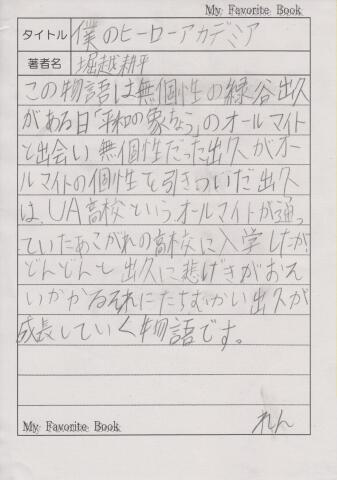 My Favorite Book
タイトル 僕のヒーローアカデミア
著者名 堀越耕平
この物語は無個性の緑谷出久
がある日「平和の象ちょう」のオールマイト
と出会い、無個性だった出久がオー
ルマイトの個性を引きついだ出久
は、UA高校というオールマイトが通っ
ていたあこがれの高校に入学したが
どんどんと出久に悲げきがおそ
いかかるそれにたちむかい出久が
成長していく物語です。
My Favorite Book れん